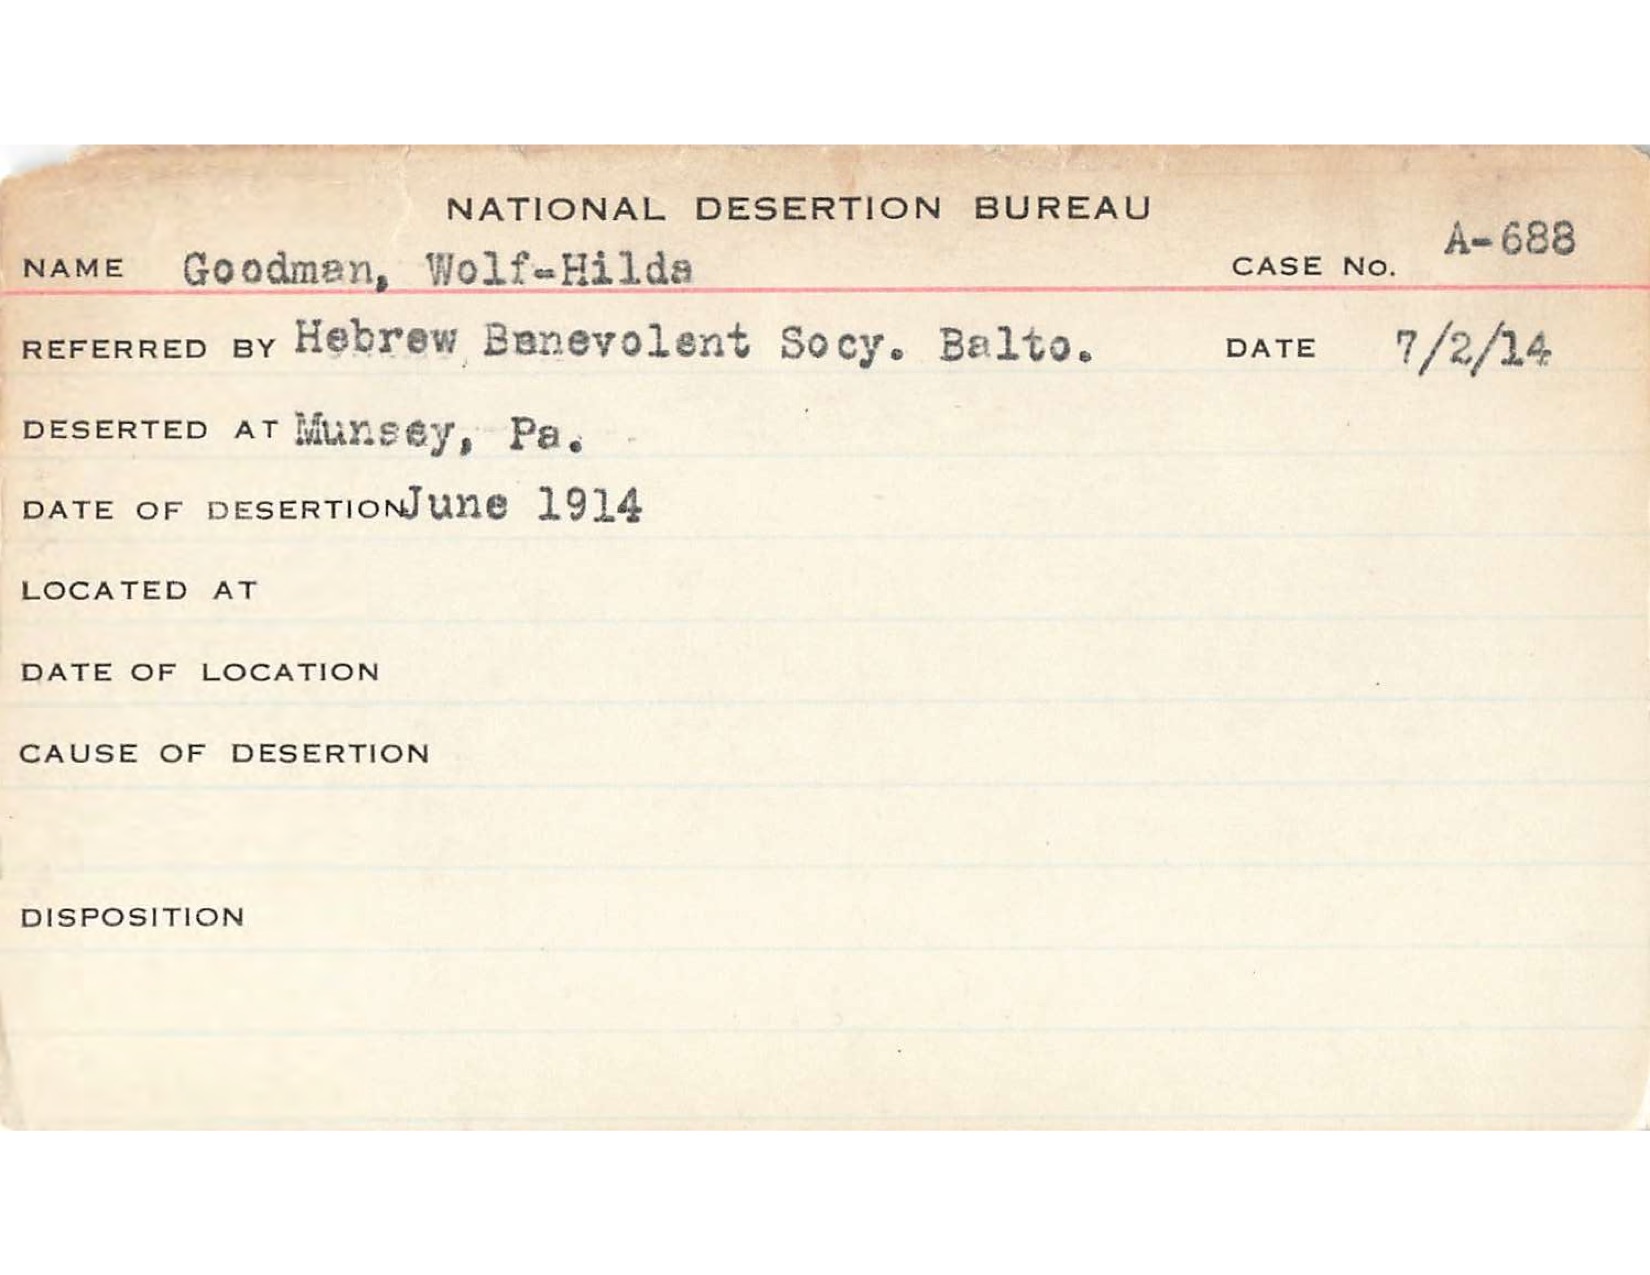 NATIONAL DESERTION BUREAU
NAME Goodman, Wolf-Hilda CASE No. A-688
REFERRED BY Hebrew Benevolent Socy. Balto. DATE 7/2/14
DESERTED AT Munsey, Pa.
DATE OF DESERTION June 1914
LOCATED AT
DATE OF LOCATION
CAUSE OF DESERTION
DISPOSITION